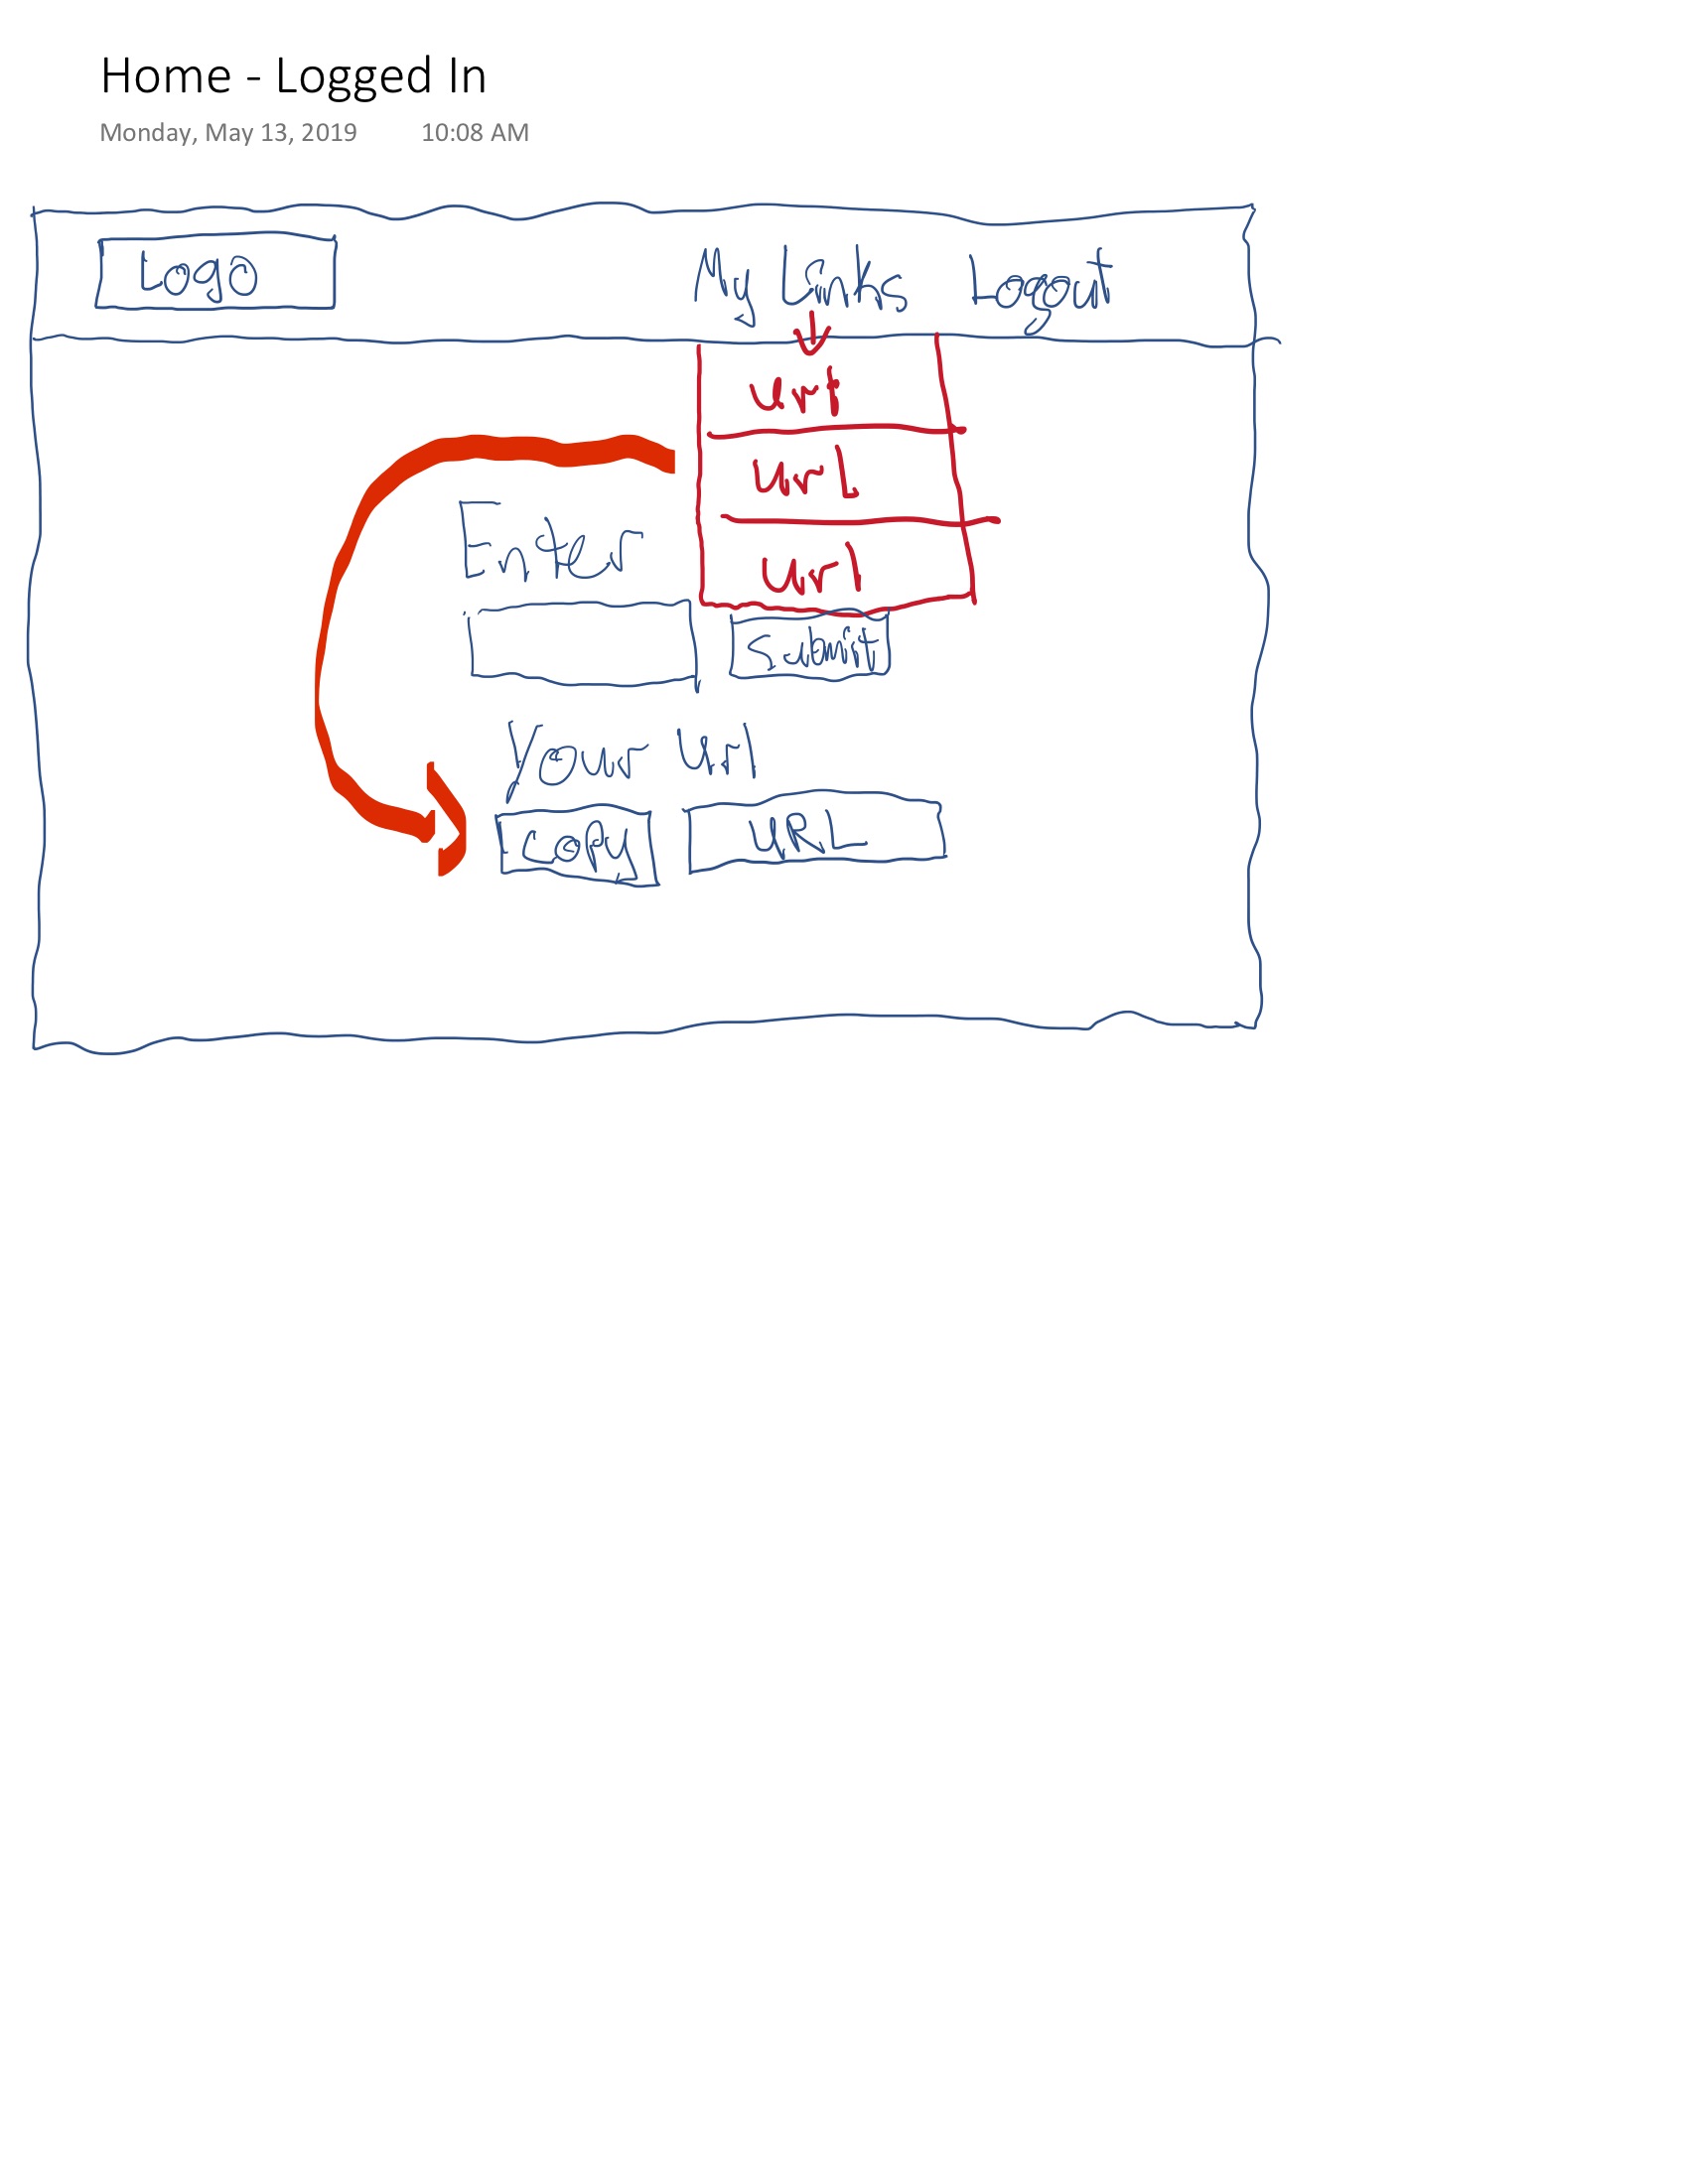 Home - Logged In
Monday, May 13, 2019 10:08 AM
Logo My Links Logout
url
url
Enter
url
Submit
Your url
Copy URL